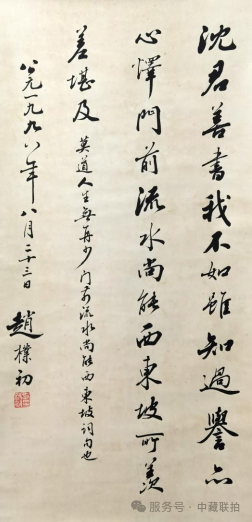 沈君善書我不如雖知過譽亦
心懌門前流水尚能西東坡所羨
差堪及 莫道人生無再少门前流水尚能西東坡词句也
公元一九九六年八月二十三日
趙樸初
服务号·中藏联拍